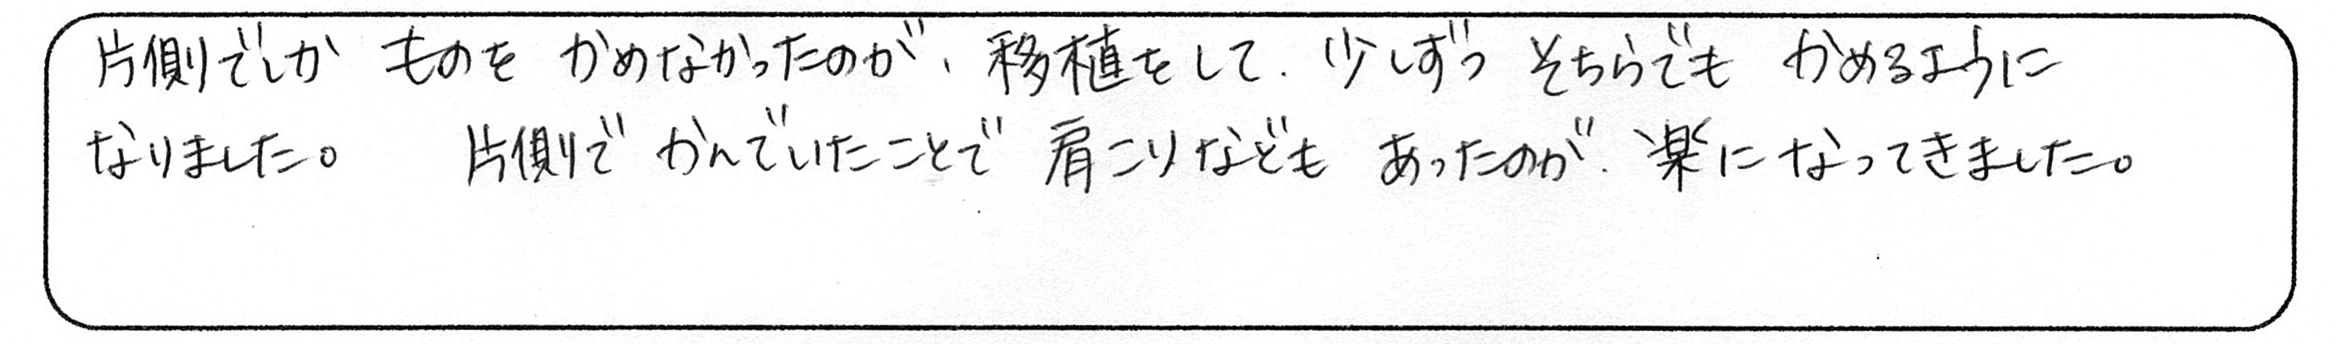 片側でしか ものを かめなかったのが、移植をして、少しずつ そちらでも かめるように
なりました。 片側で かんでいたことで 肩こりなども あったのが、楽になってきました。